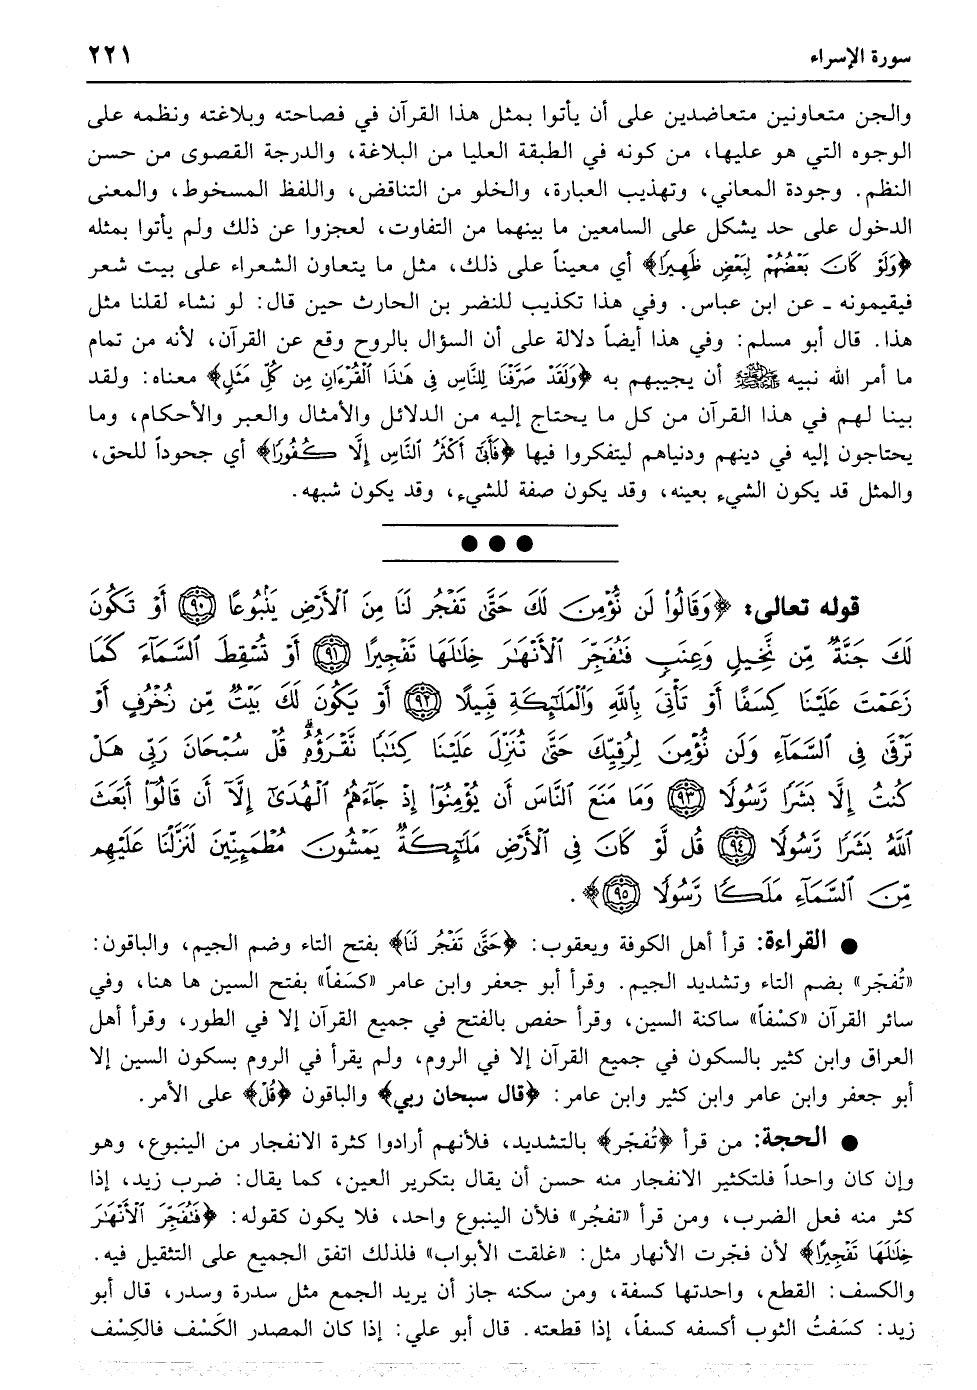 سورة الإسراء ٢٢١
والجن متعاونين متعاضدين على أن يأتوا بمثل هذا القرآن في فصاحته وبلاغته ونظمه على
الوجوه التي هو عليها، من كونه في الطبقة العليا من البلاغة، والدرجة القصوى من حسن
النظم. وجودة المعاني، وتهذيب العبارة، والخلو من التناقض، واللفظ المسخوط، والمعنى
الدخول على حد يشكل على السامعين ما بينهما من التفاوت، لعجزوا عن ذلك ولم يأتوا بمثله
﴿وَلَوْ كَانَ بَعْضُهُمْ لِبَعْضٍ ظَهِيرًا﴾ أي معيناً على ذلك، مثل ما يتعاون الشعراء على بيت شعر
فيقيمونه ـ عن ابن عباس. وفي هذا تكذيب للنضر بن الحارث حين قال: لو نشاء لقلنا مثل
هذا. قال أبو مسلم: وفي هذا أيضاً دلالة على أن السؤال بالروح وقع عن القرآن، لأنه من تمام
ما أمر الله نبيه ﷺ أن يجيبهم به ﴿وَلَقَدْ صَرَّفْنَا لِلنَّاسِ فِى هَٰذَا ٱلْقُرْءَانِ مِن كُلِّ مَثَلٍ﴾ معناه: ولقد
بينا لهم في هذا القرآن من كل ما يحتاج إليه من الدلائل والأمثال والعبر والأحكام، وما
يحتاجون إليه في دينهم ودنياهم ليتفكروا فيها ﴿فَأَبَىٰٓ أَكْثَرُ ٱلنَّاسِ إِلَّا كُفُورًا﴾ أي جحوداً للحق،
والمثل قد يكون الشيء بعينه، وقد يكون صفة للشيء، وقد يكون شبهه.
● ● ●
قوله تعالى: ﴿وَقَالُوا۟ لَن نُّؤْمِنَ لَكَ حَتَّىٰ تَفْجُرَ لَنَا مِنَ ٱلْأَرْضِ يَنۢبُوعًا ٩٠ أَوْ تَكُونَ
لَكَ جَنَّةٌ مِّن نَّخِيلٍ وَعِنَبٍ فَتُفَجِّرَ ٱلْأَنْهَٰرَ خِلَٰلَهَا تَفْجِيرًا ٩١ أَوْ تُسْقِطَ ٱلسَّمَآءَ كَمَا
زَعَمْتَ عَلَيْنَا كِسَفًا أَوْ تَأْتِىَ بِٱللَّهِ وَٱلْمَلَٰٓئِكَةِ قَبِيلًا ٩٢ أَوْ يَكُونَ لَكَ بَيْتٌ مِّن زُخْرُفٍ أَوْ
تَرْقَىٰ فِى ٱلسَّمَآءِ وَلَن نُّؤْمِنَ لِرُقِيِّكَ حَتَّىٰ تُنَزِّلَ عَلَيْنَا كِتَٰبًا نَّقْرَؤُهُۥ قُلْ سُبْحَانَ رَبِّى هَلْ
كُنتُ إِلَّا بَشَرًا رَّسُولًا ٩٣ وَمَا مَنَعَ ٱلنَّاسَ أَن يُؤْمِنُوٓا۟ إِذْ جَآءَهُمُ ٱلْهُدَىٰٓ إِلَّآ أَن قَالُوٓا۟ أَبَعَثَ
ٱللَّهُ بَشَرًا رَّسُولًا ٩٤ قُل لَّوْ كَانَ فِى ٱلْأَرْضِ مَلَٰٓئِكَةٌ يَمْشُونَ مُطْمَئِنِّينَ لَنَزَّلْنَا عَلَيْهِم
مِّنَ ٱلسَّمَآءِ مَلَكًا رَّسُولًا ٩٥﴾.
● القراءة: قرأ أهل الكوفة ويعقوب: ﴿حَتَّىٰ تَفْجُرَ لَنَا﴾ بفتح التاء وضم الجيم، والباقون:
«تُفجّر» بضم التاء وتشديد الجيم. وقرأ أبو جعفر وابن عامر «كسَفاً» بفتح السين ها هنا، وفي
سائر القرآن «كسْفاً» ساكنة السين، وقرأ حفص بالفتح في جميع القرآن إلا في الطور، وقرأ أهل
العراق وابن كثير بالسكون في جميع القرآن إلا في الروم، ولم يقرأ في الروم بسكون السين إلا
أبو جعفر وابن عامر وابن كثير وابن عامر: ﴿قال سبحان ربي﴾ والباقون ﴿قُلْ﴾ على الأمر.
● الحجة: من قرأ ﴿تُفجّر﴾ بالتشديد، فلأنهم أرادوا كثرة الانفجار من الينبوع، وهو
وإن كان واحداً فلتكثير الانفجار منه حسن أن يقال بتكرير العين، كما يقال: ضرب زيد، إذا
كثر منه فعل الضرب، ومن قرأ «تفجُر» فلأن الينبوع واحد، فلا يكون كقوله: ﴿فَتُفَجِّرَ ٱلْأَنْهَٰرَ
خِلَٰلَهَا تَفْجِيرًا﴾ لأن فجّرت الأنهار مثل: «غلقت الأبواب» فلذلك اتفق الجميع على التثقيل فيه.
والكسف: القطع، واحدتها كسفة، ومن سكنه جاز أن يريد الجمع مثل سدرة وسدر، قال أبو
زيد: كسَفتُ الثوب أكسفه كسفاً، إذا قطعته. قال أبو علي: إذا كان المصدر الكَسْف فالكِسْف